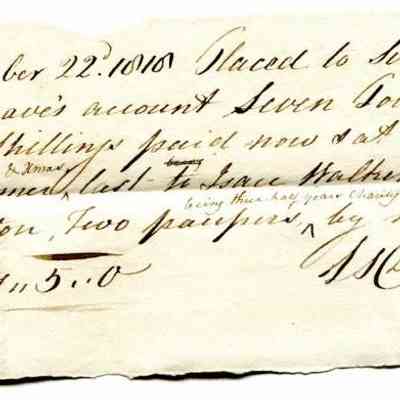 ber 22d. 1818 Placed to
ave's account Seven
Shillings paid now & at
& Xmas
mer last to Isaac Walker
being their half year Charity
on, Two paupers, by
,, 5 ,, 0